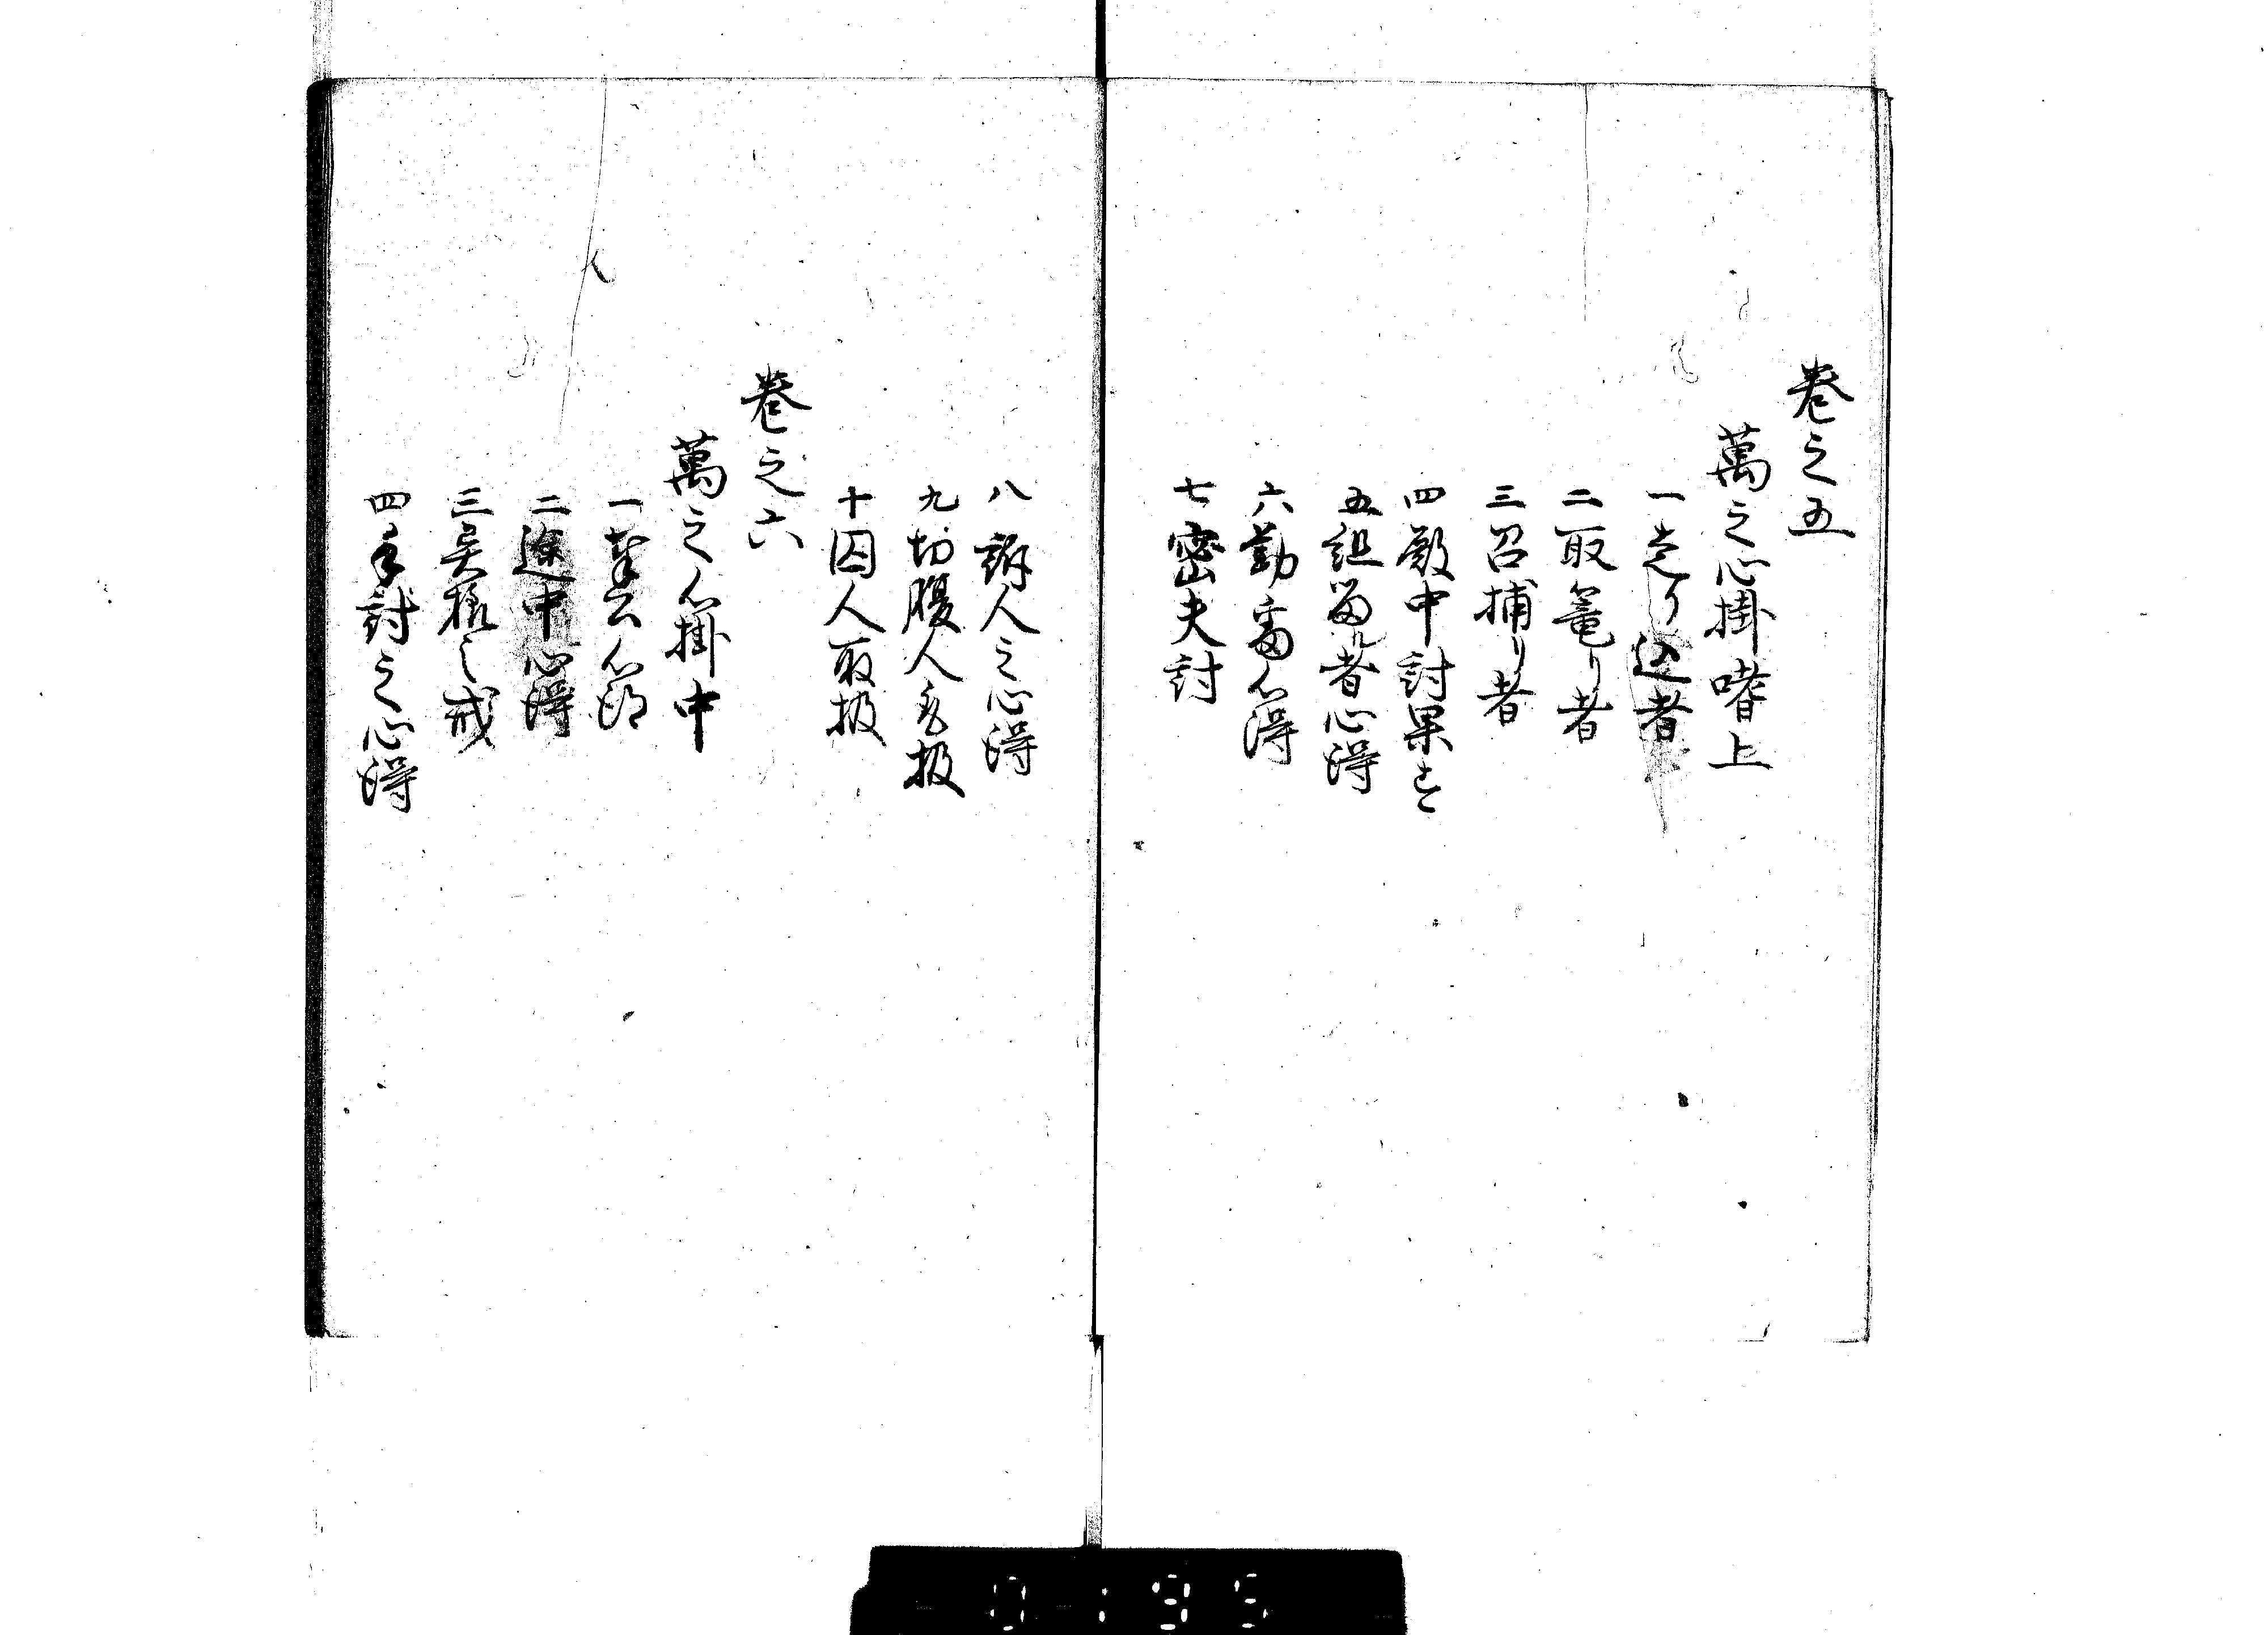 巻之五
萬之心掛嗜上
一走り込者
二取篭り者
三召捕り者
四殿中討果士
五組留者心得
六勤番心得
七密夫討
八訴人之心得
九切腹人取扱
十囚人取扱
巻之六
萬之心掛中
一奉公心節
二途中心得
三異様之戒
四手討之心得
0195